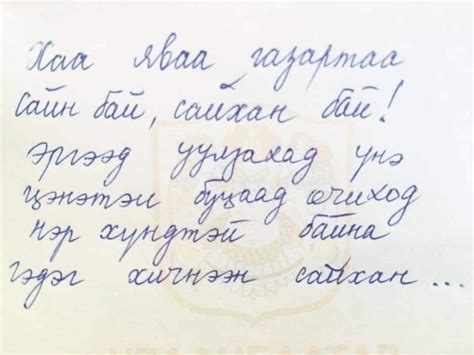 Хаа яваа газартаа
сайн бай, сайхан бай!
Эргээд уулзахад үнэ
цэнэтэй буцаад очиход
нэр хүндтэй байна
гэдэг хичнээн сайхан ...